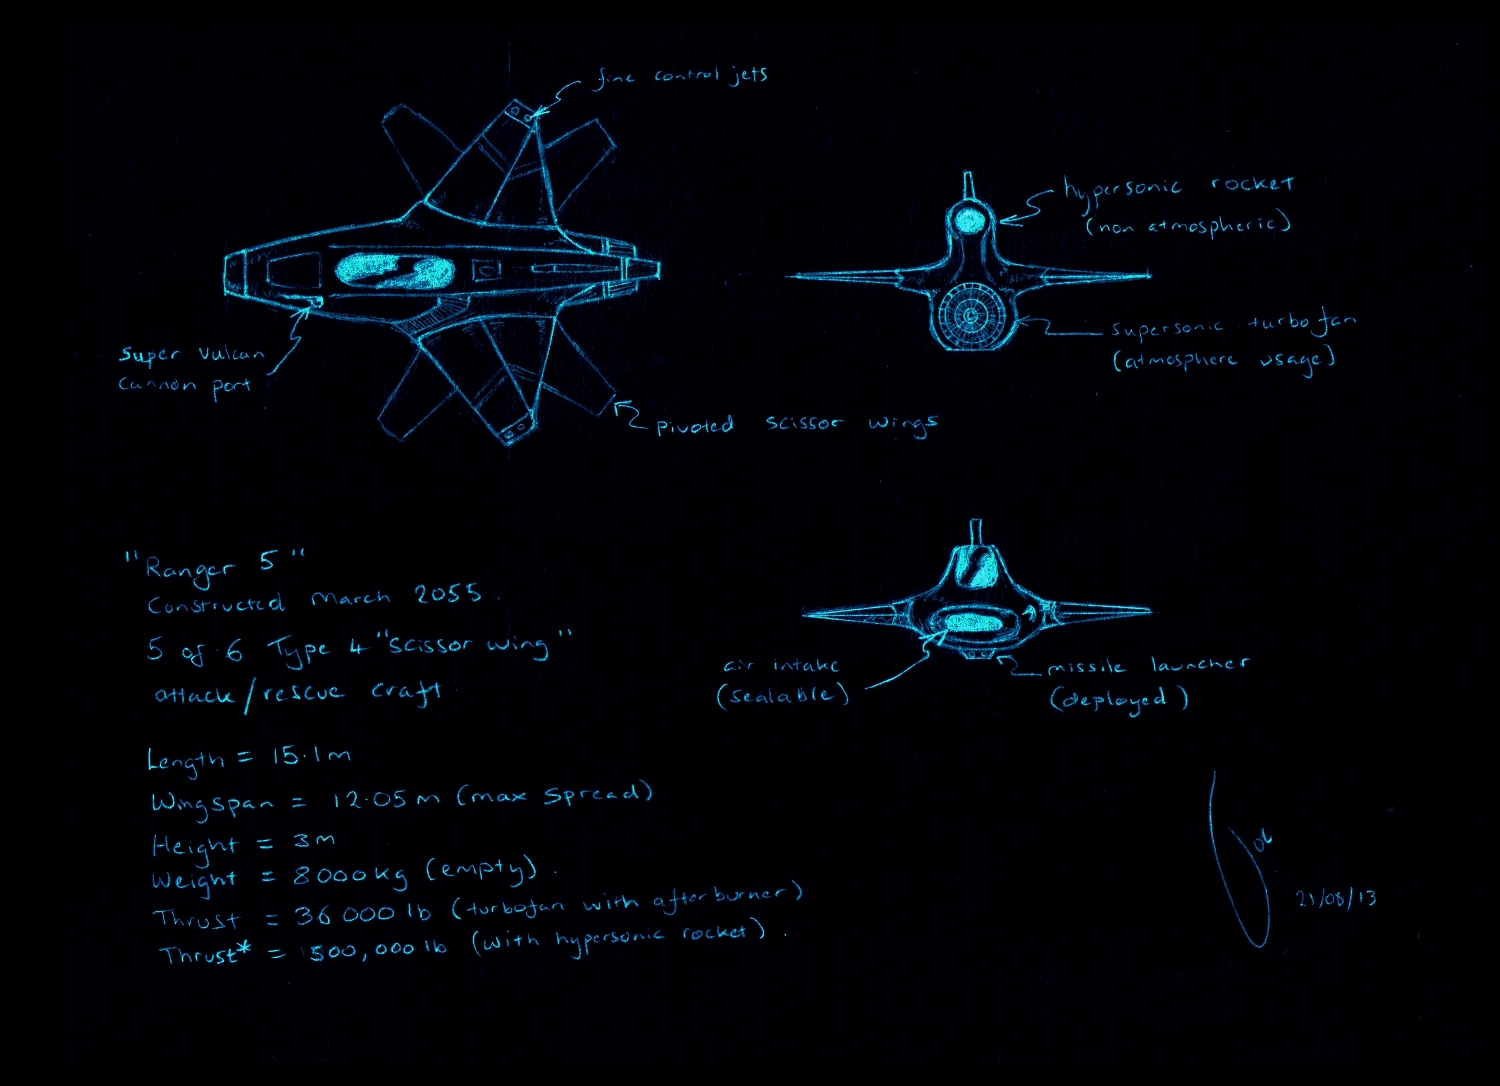 fine control jets
hypersonic rocket
(non atmospheric)
supersonic turbofan
(atmosphere usage)
super vulcan
cannon port
pivoted scissor wings
"Ranger 5"
Constructed March 2055.
5 of 6 Type 4 "scissor wing"
attack/rescue craft
air intake
(sealable)
missile launcher
(deployed)
Length = 15.1m
Wingspan = 12.05m (max spread)
Height = 3m
Weight = 8000kg (empty).
Thrust = 36 000 lb (turbofan with afterburner)
Thrust* = 500,000 lb (with hypersonic rocket).
21/08/13